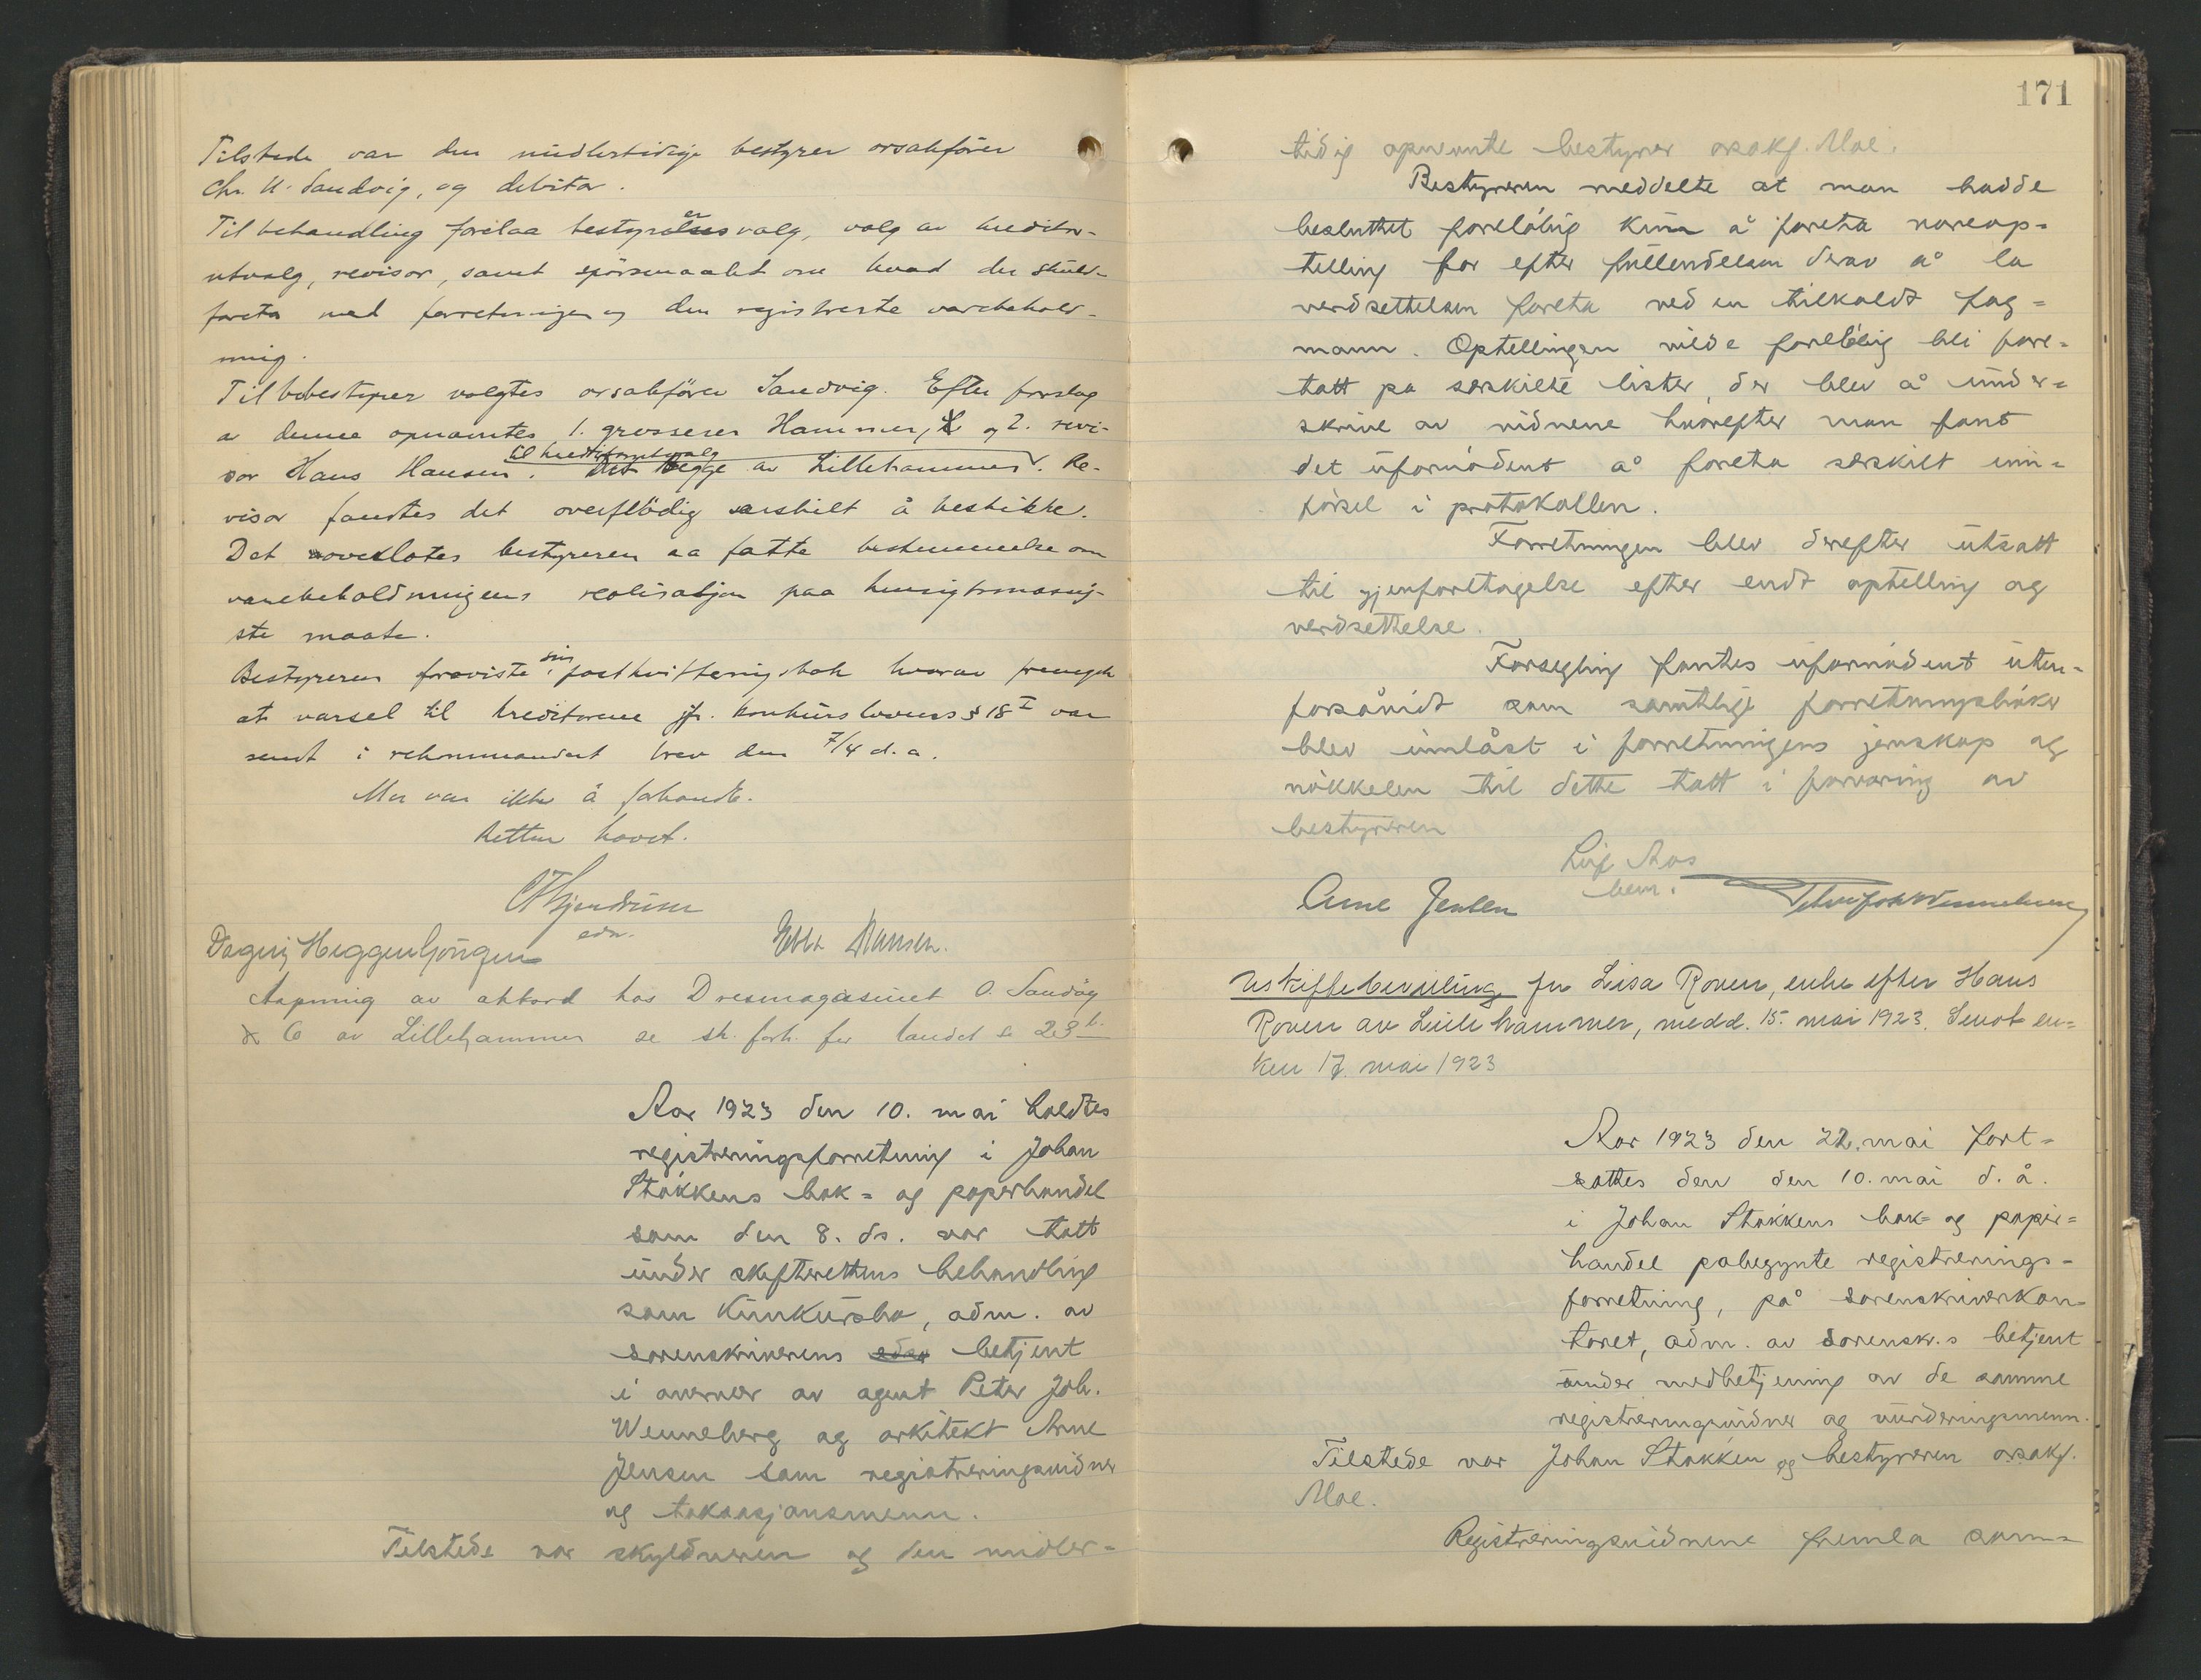 Tilstede var den midlertidige bestyrer orsakfører
Chr. U. Sandvig, og debitor.
Til behandling forelaa bestyrelsesvalg, valg av kreditor-
er
utvalg, revisor, samt spørsmaalet om hvad der skuld-
foreta med forretningen og den registrerte varebehold-
ning.
Til bobestyrer valgtes orsakfører Sandvig. Efter forslag
av denne opnævntes 1. grosserer Hammer, og 2. revi-
til kreditorutvalg
sor Hans Hansen. begge av Lillehammer. Re-
visor fandtes det overflödig særskilt å beskikke.
Det overlotes bestyreren aa fatte bestemmelse om
varebeholdningens realisasjon paa hensigtsmæssig-
ste maate.
sin
Bestyreren foreviste postkvitteringsbok hvorav fremgik
at varsel til kreditorene jfr. konkurslovens § 18 I var
sendt i rekommandert brev den 7/4 d.a.
Mer var ikke å forhandle.
Retten hævet.
edn.
Dagny Heggenhougen
Ebba Hansen.
Aapning av akkord hos Dresmagasinet O. Sandvig
& Co av Lillehammer se sk. forh. for landet s. 23
Aar 1923 den 10. mai holdtes
registreringsforretning i Johan
Stokkens bok- og papirhandel
som den 8. ds. var tatt
under skifterettens behandling
som konkursbo, adm. av
sorenskriverens edsv betjent
i nærvær av agent Peter Joh.
Wenneberg og arkitekt Arne
Jensen som registreringsvidner
og taksasjonsmenn.
Tilstede var skyldneren og den midler-
171
tidig opnevnte bestyrer orsakf. Moe.
Bestyreren meddelte at man hadde
besluttet foreløbig kun å foreta vareop-
telling for efter fullendelsen derav å la
verdsettelsen foreta ved en tilkaldt fag-
mann. Optellingen vilde foreløbig bli fore-
tatt på særskilte lister, der blev å under-
skrive av vidnene hvorefter man fant
det ufornødent å foreta særskilt inn-
førsel i protokollen.
Forretningen blev derefter utsatt
til gjenforetagelse efter endt optelling og
verdsettelse.
Forsegling fantes ufornødent uten-
forsåvidt som samtlige forretningsbøker
blev innlåst i forretningens jernskap og
nøkkelen til dette tatt i forvaring av
bestyreren
Leif Moe
bem.
Arne Jensen
Peter Joh Wenneberg
Uskiftebevilling for Lisa Roven, enke efter Hans
Roven av Lillehammer, medd. 15. mai 1923. Sendt en-
ken 17. mai 1923
Aar 1923 den 22. mai fort-
sattes den den 10. mai d. å.
i Johan Stokkens bok- og papir-
handel påbegynte registrerings-
forretning, på sorenskriverkon-
toret, adm. av sorenskr.s betjent
under medbetjening av de samme
registreringsvidner og vurderingsmenn.
Tilstede var Johan Stokken og bestyreren orsakf.
Moe.
Registreringsvidnene fremla sam-